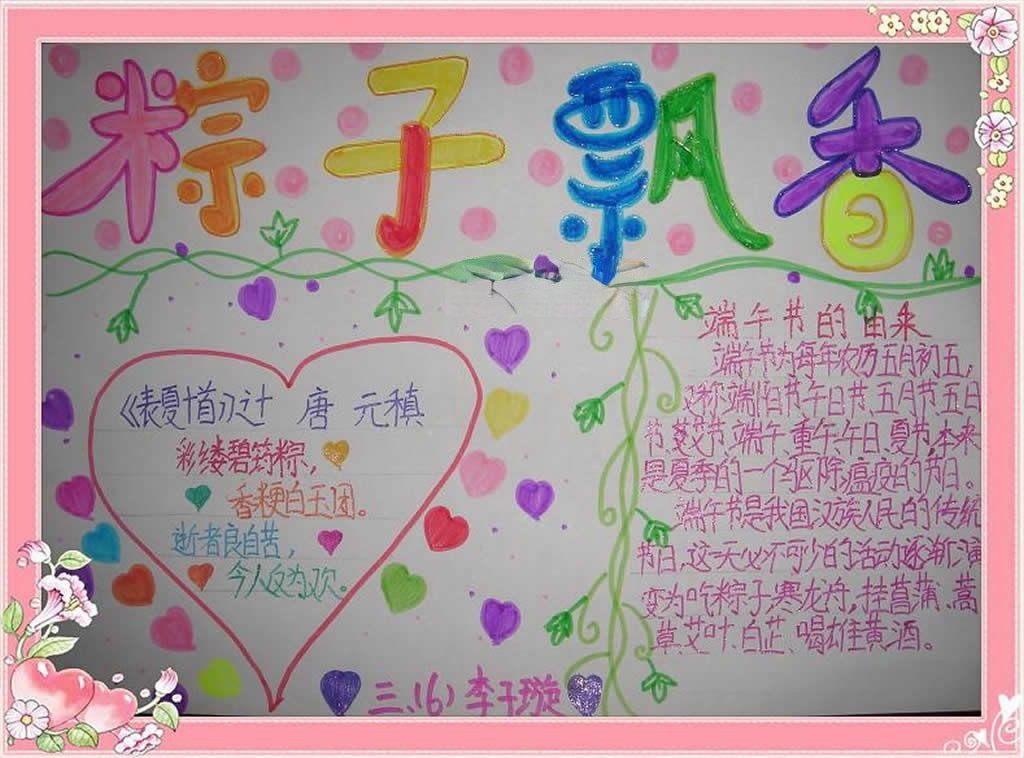 粽子飘香
《表夏十首》之十 唐 元稹
彩缕碧筠粽，
香粳白玉团。
逝者良自苦，
今人反为欢。
三、(6) 李子璇
端午节的由来
端午节为每年农历五月初五，
又称端阳节午日节、五月节五日
节、艾节、端午、重午、午日、夏节，本来
是夏季的一个驱除瘟疫的节日。
端午节是我国汉族人民的传统
节日，这一天必不可少的活动逐渐演
变为吃粽子，赛龙舟，挂菖蒲、蒿
草、艾叶、白芷、喝雄黄酒。